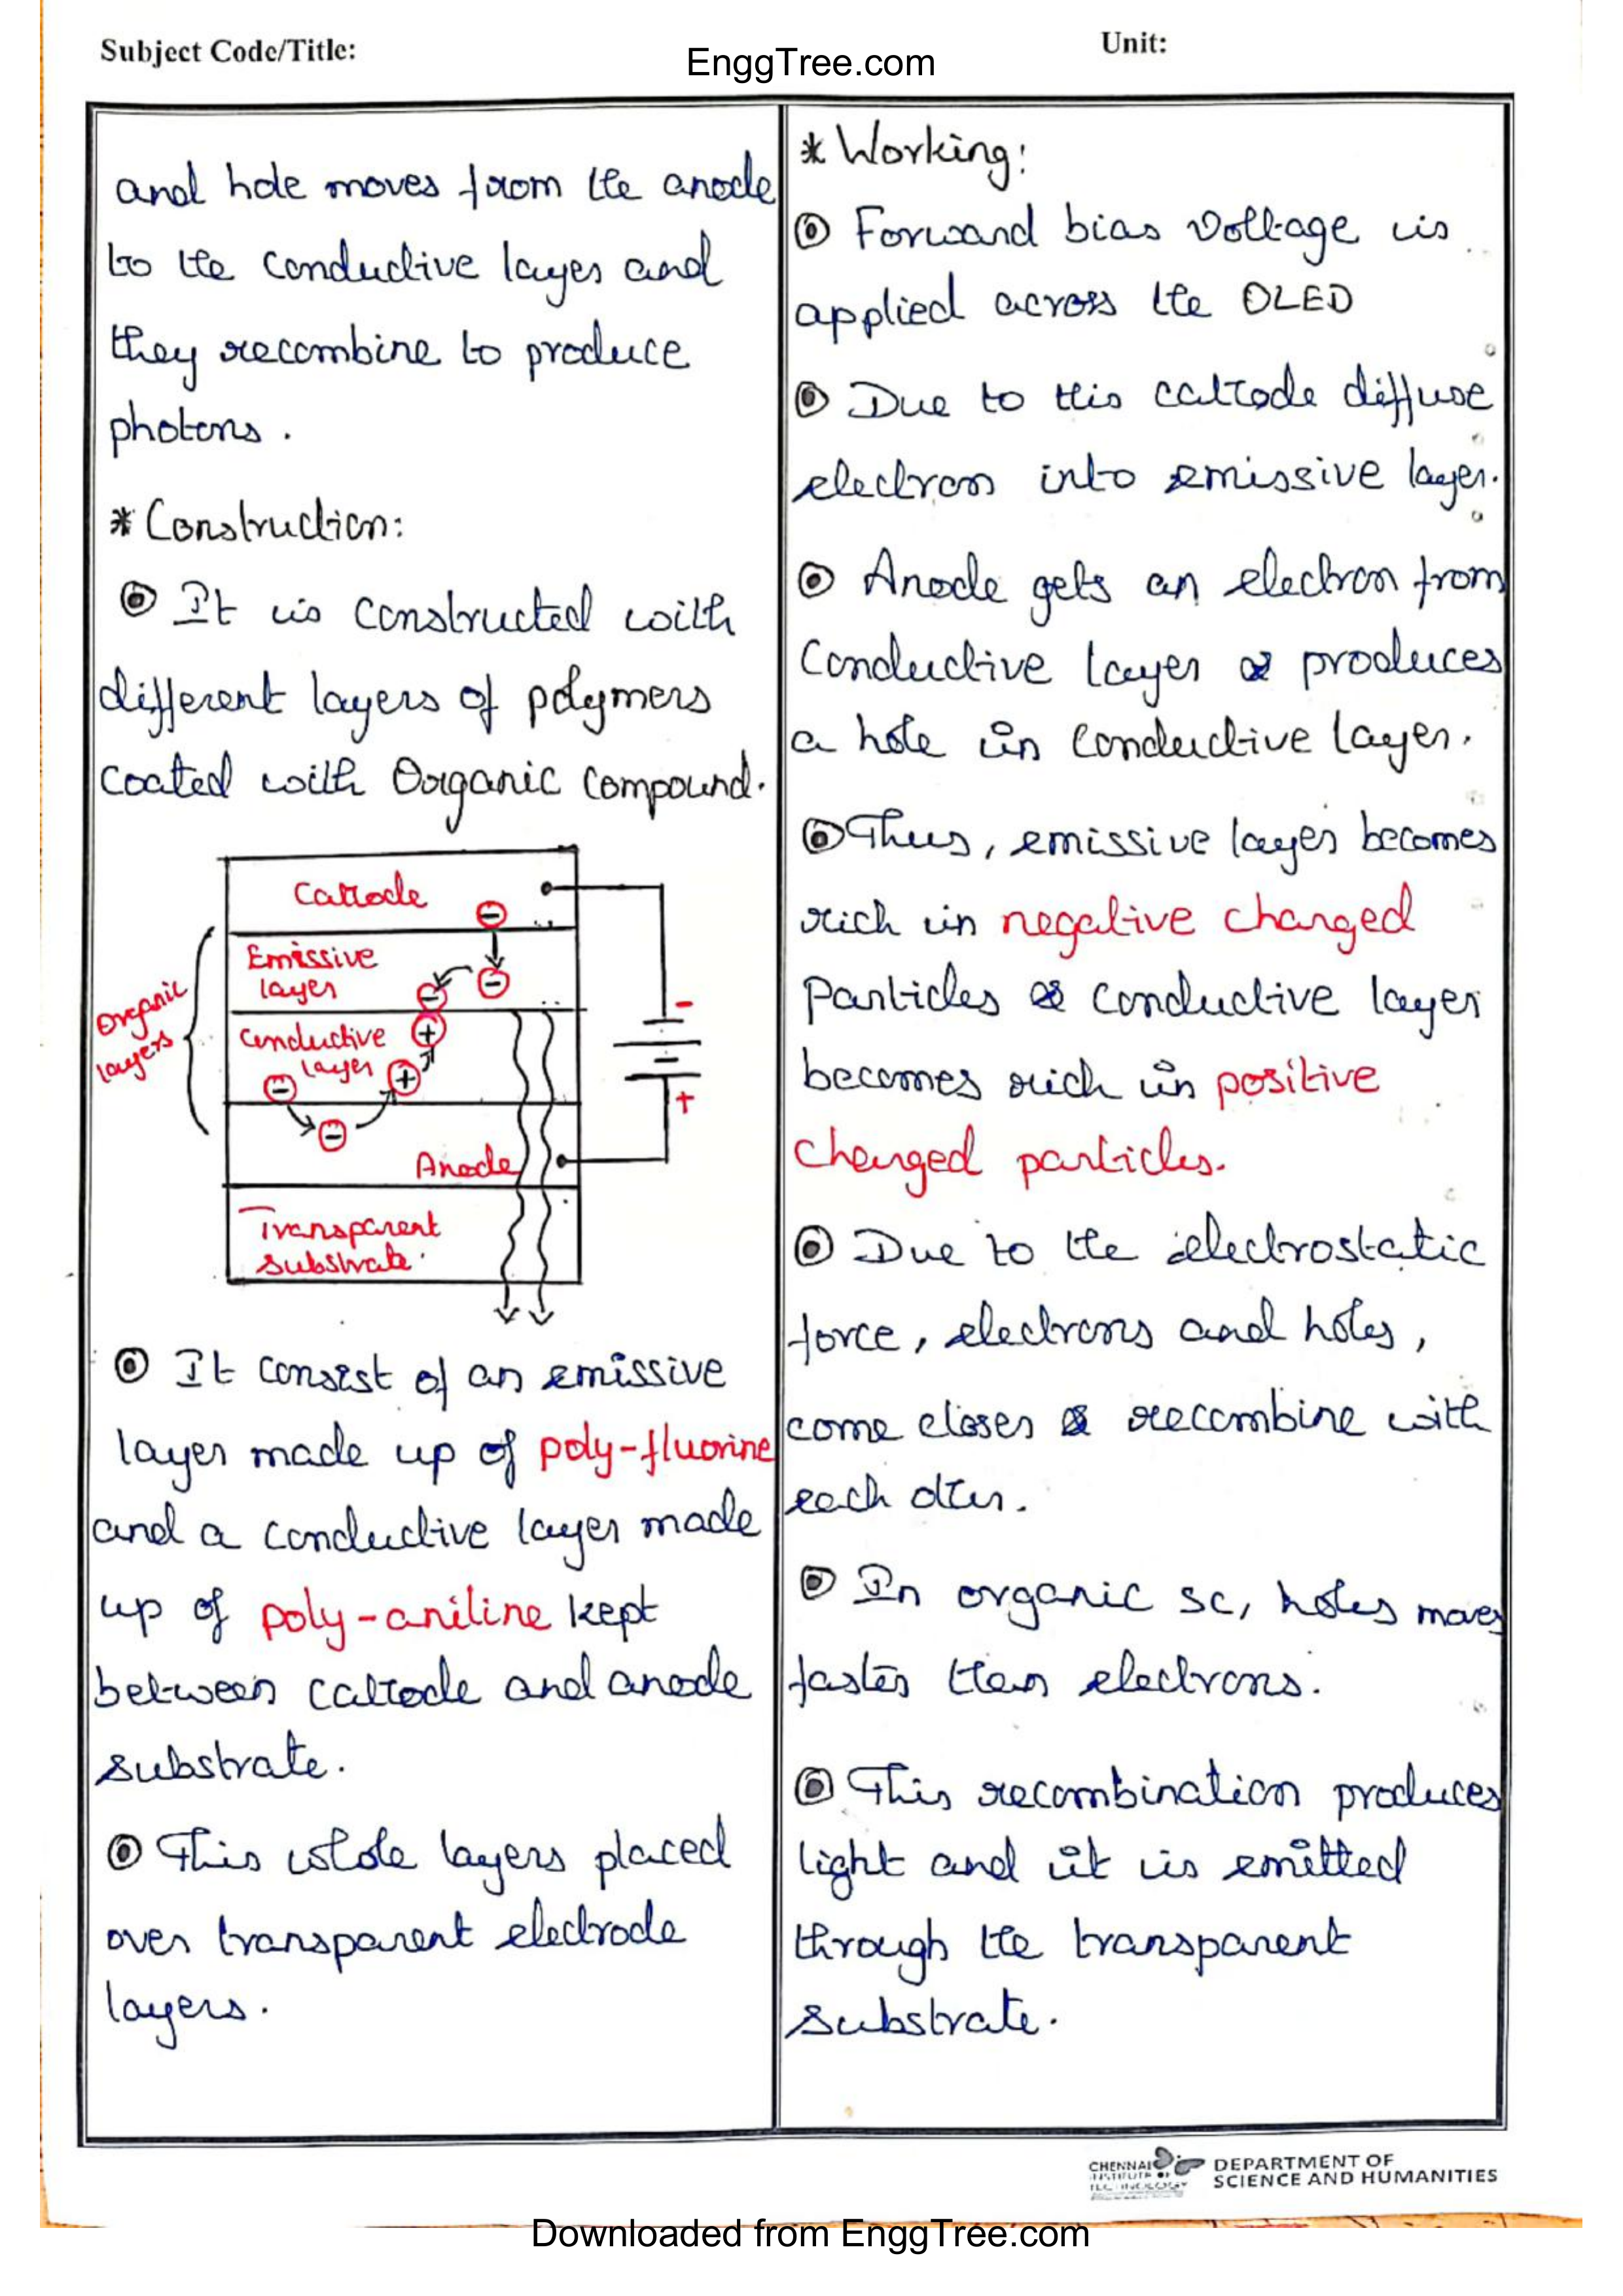 Subject Code/Title:
EnggTree.com
Unit:
and hole moves from the anode
to the conductive layer and
they recombine to produce
photons.
* Construction:
It is constructed with
different layers of polymers
coated with Organic compound.
Cathode
Emissive
layer
Conductive
layer
Organic
layers
Anode
Transparent
substrate.
-
+
It consist of an emissive
layer made up of poly-fluorine
and a conductive layer made
up of poly-aniline kept
between cathode and anode
substrate.
This whole layers placed
over transparent electrode
layers.
* Working:
Forward bias voltage is
applied across the OLED
Due to this cathode diffuse
electron into emissive layer.
Anode gets an electron from
Conductive layer & produces
a hole in conductive layer.
Thus, emissive layer becomes
rich in negative charged
Particles & conductive layer
becomes rich in positive
charged particles.
Due to the electrostatic
force, electrons and holes,
come closer & recombine with
each other.
In organic sc, holes moves
faster than electrons.
This recombination produces
light and it is emitted
through the transparent
substrate.
CHENNAI
INSTITUTE OF
TECHNOLOGY
DEPARTMENT OF
SCIENCE AND HUMANITIES
Downloaded from EnggTree.com